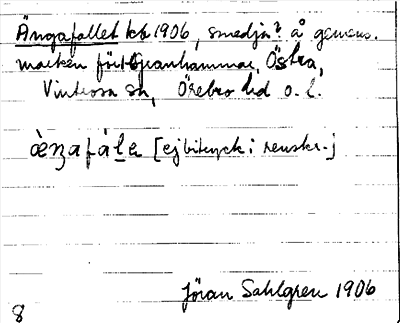 Ängafallet kb 1906, smedja? å gemens.
marken för Granhammar, Östra,
Vintrosa sn, Örebro hd o. l.
ὲŋafàlɐ [ej bitryck i renskr.]
Jöran Sahlgren 1906
8